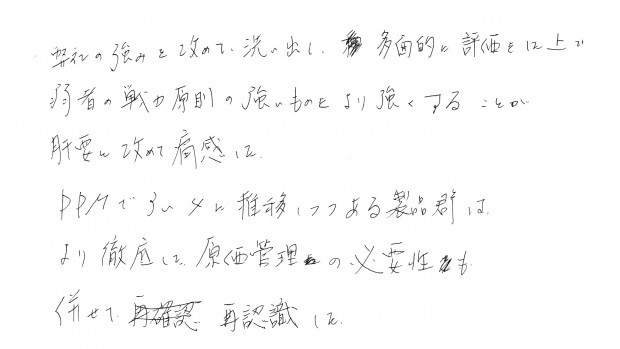 弊社の強みを改めて、洗い出し、多面的に評価をした上で
弱者の戦力原則の強いものをより強くすることが
肝要と改めて痛感した。
PPMで3い4に推移しつつある製品群は、
より徹底した原価管理の必要性も
併せて再確認 再認識した。